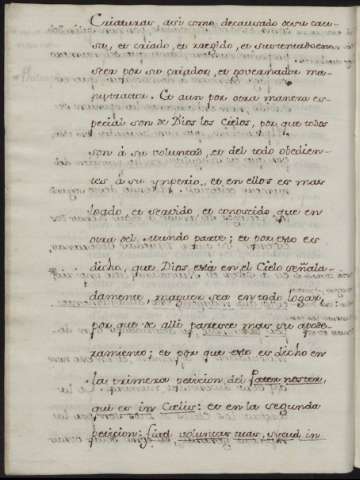 Criaturas, asi como decausado de su cau-
sa, et criado, et regido, et sustentado
por su criador, et governador
Et aun por otra manera es-
pecial son de Dios los Cielos, por que todos
son à su voluntad, et del todo obedien-
tes á su ynperio, et en ellos es mas
loado, et servido, et conoscido que en
otra del Mundo parte; et por esto es
dicho, que Dios está en el Cielo señala-
damente, maguer sea en todo logar,
por que de alli paresce mas su apode-
ramiento; et por que esto es dicho en
la primera peticion del Pater noster,
qui es in Cœlis: et en la segunda
peticion: fiad voluntas tuas, sicud in